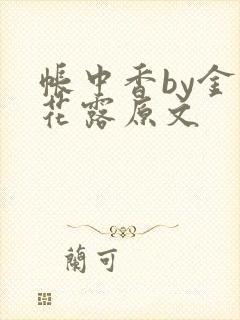 帳中香by金
花露原文
蘭可